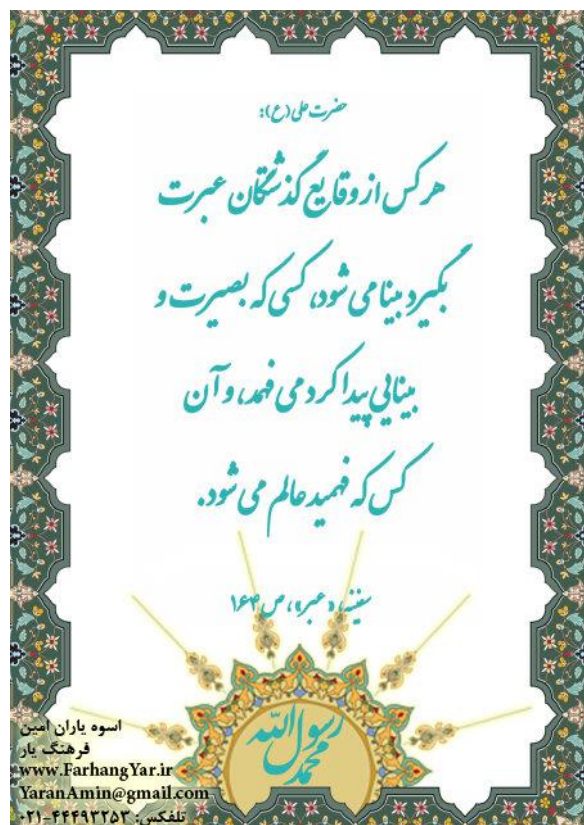 حضرت علی (ع):
هر کس از وقایع گذشتگان عبرت
بگیرد بینا می شود، کسی که بصیرت و
بینایی پیدا کرد می فهمد، و آن
کس که فهمید عالم می شود.
سفینه، «عبر»، ص ۱۶۴
محمد رسول الله
اسوه یاران امین
فرهنگ یار
www.FarhangYar.ir
YaranAmin@gmail.com
تلفکس: ۴۴۴۹۳۲۵۳-۰۲۱